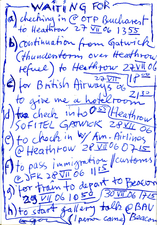 WAITING FOR
a) checking in @ OTP Bucharest
to Heathrow 27 VII 06 1355
b) continuation from Gatwick
(thunderstorm over Heathrow
refuel) to Heathrow 27 VII 06
c) for British Airways 06
to give me a hotel room
d) to check into
SOFITEL GATWICK 28 VII 06
e) to check in w/ Am. Airlines
@ Heathrow 28 VII 06 0715
f) to pass immigration/customs
@ JFK 28 VII 06 1125
g) for train to depart to Beacon
29 VII 06 1050
h) to start gallery talk @ BAU
(1 person came) Beacon